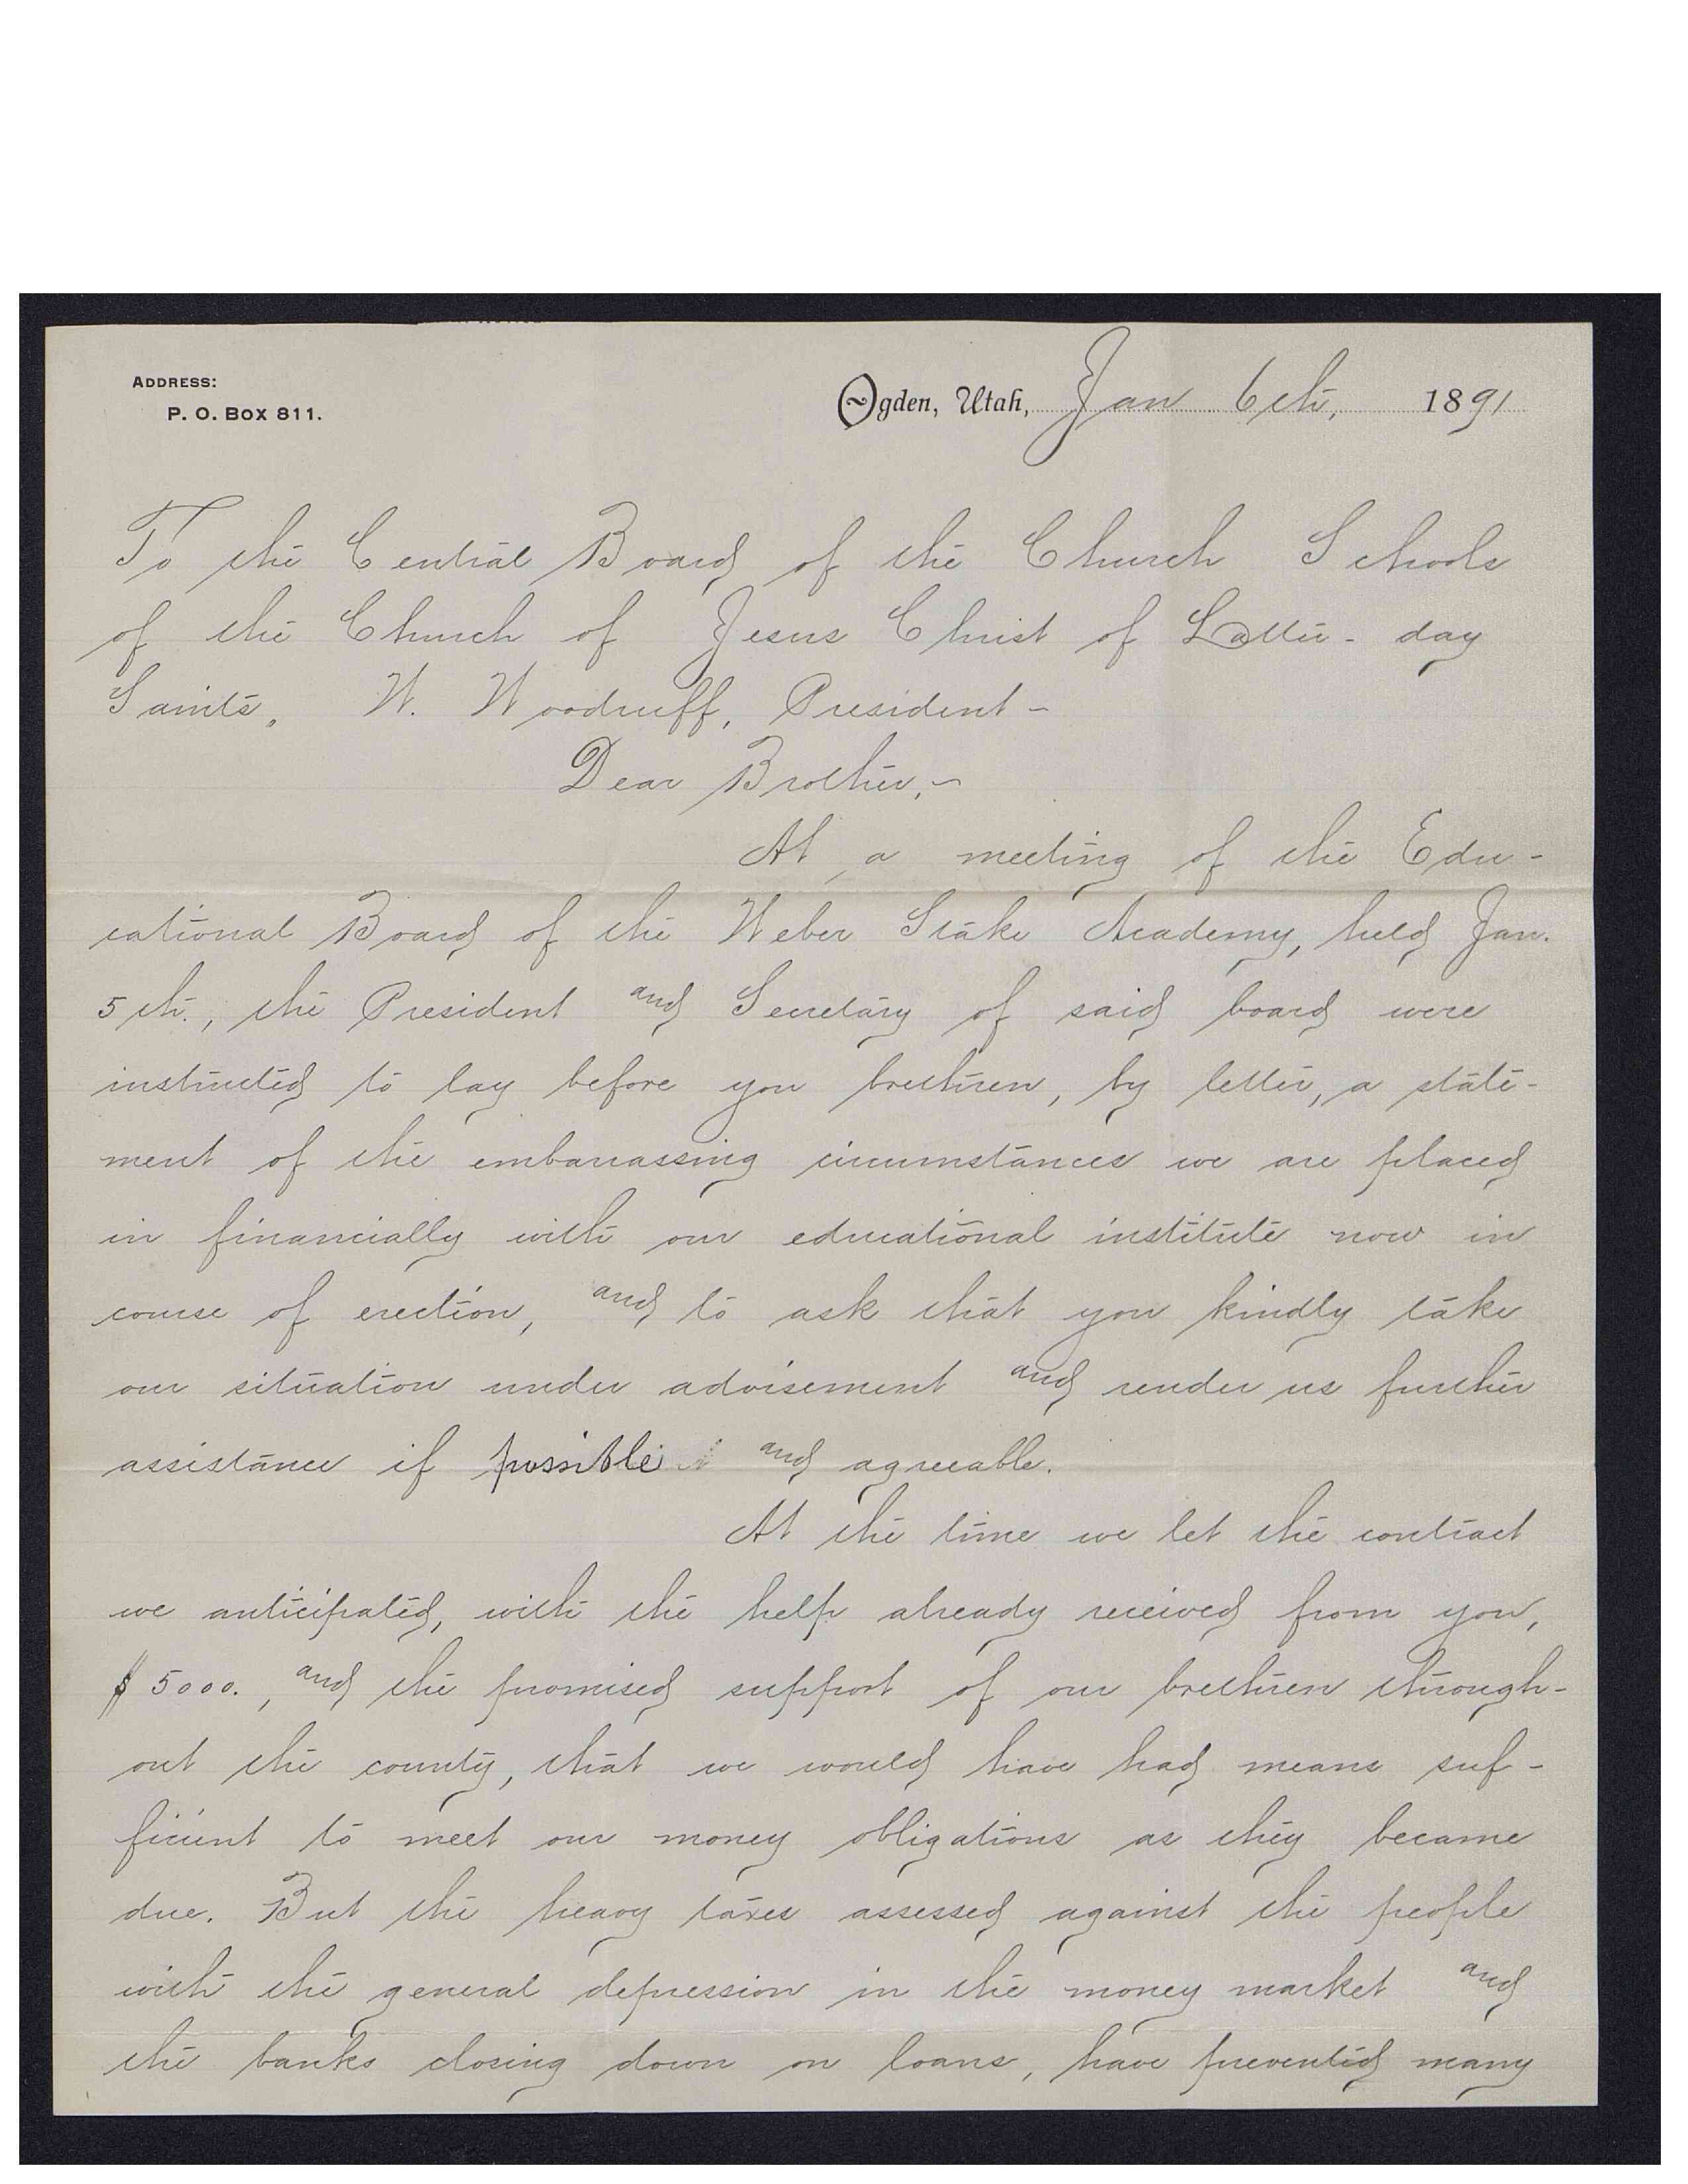 ADDRESS:
P. O. BOX 811.
Ogden, Utah, Jan 6th, 1891
To the Central Board of the Church Schools
of the Church of Jesus Christ of Latter-day
Saints, W. Woodruff, President-
Dear Brother,-
At a meeting of the Edu-
cational Board of the Weber Stake Academy, held Jan.
5th., the President and Secretary of said board were
instructed to lay before you brethren, by letter, a state-
ment of the embarrassing circumstances we are placed
in financially with our educational institute now in
course of erection, and to ask that you kindly take
our situation under advisement and render us further
assistance if possible and agreeable.
At the time we let the contract
we anticipated, with the help already received from you,
$5000., and the promised support of our brethren through-
out the county, that we would have had means suf-
ficient to meet our money obligations as they became
due. But the heavy taxes assessed against the people
with the general depression in the money market and
the banks closing down on loans, have prevented many